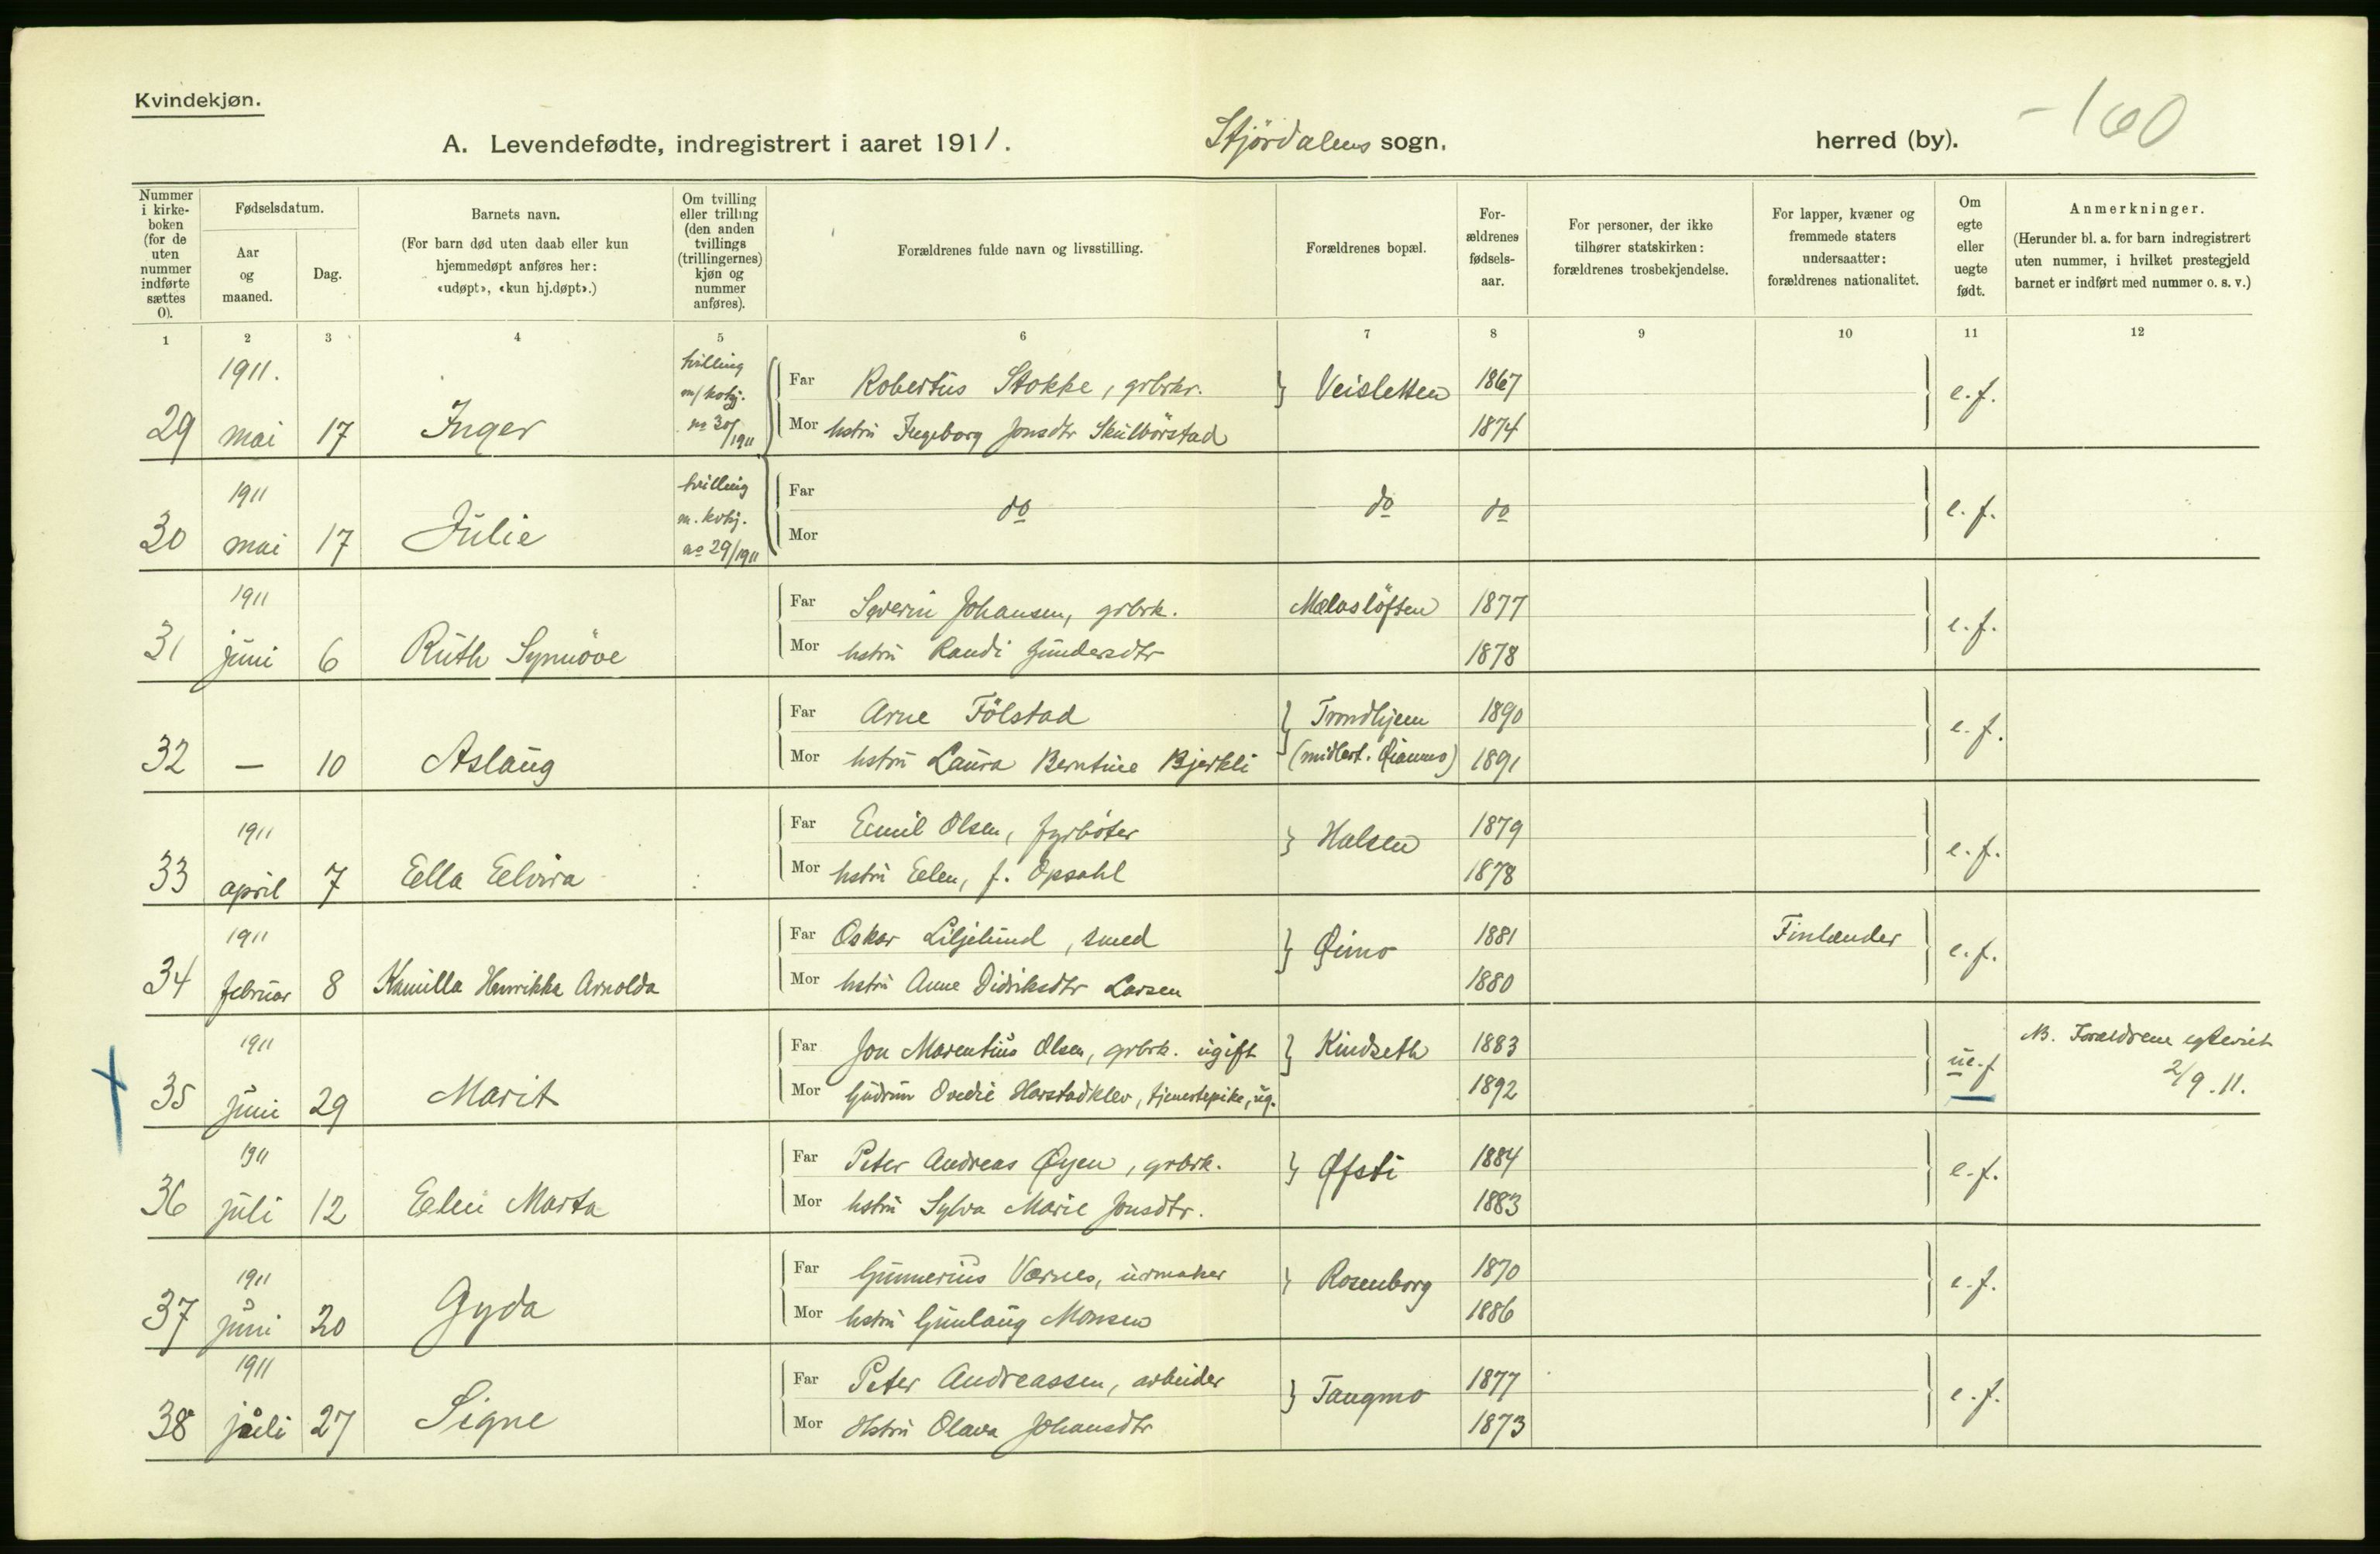 Kvindekjøn.
-160
A. Levendefødte, indregistrert i aaret 1911. Stjördalens sogn. herred (by).
Nummer i kirke-boken (for de uten nummer indførte sættes 0).
Fødselsdatum.
Aar og maaned.
Dag.
Barnets navn.
(For barn død uten daab eller kun hjemmedøpt anføres her: «udøpt», «kun hj.døpt».)
Om tvilling eller trilling (den anden tvillings (trillingernes) kjøn og nummer anføres).
Forældrenes fulde navn og livsstilling.
Forældrenes bopæl.
For-ældrenes fødsels-aar.
For personer, der ikke tilhører statskirken: forældrenes trosbekjendelse.
For lapper, kvæner og fremmede staters undersaatter: forældrenes nationalitet.
Om egte eller uegte født.
Anmerkninger.
(Herunder bl. a. for barn indregistrert uten nummer, i hvilket prestegjeld barnet er indført med nummer o. s. v.)
1 2 3 4 5 6 7 8 9 10 11 12
29 1911. mai 17 Inger tvilling m/ kvkj. no 30/1911 Far Robertus Stokke, grbrkr. Veisletten 1867 e.f.
Mor hstru Ingeborg Jonsdtr Skulbörstad 1874
30 1911 mai 17 Julie tvilling m. kvkj. no 29/1911 Far do do do e.f.
Mor
31 1911 juni 6 Ruth Synnöve Far Severin Johansen, grbrk. Mælaslöften 1877 e.f.
Mor hstru Randi Gundersdtr 1878
32 — 10 Aslaug Far Arne Fölstad Trondhjem 1890 e.f.
Mor hstru Laura Berntine Bjerkli (midlert. Øianmo) 1891
33 1911 april 7 Ella Elvira Far Emil Olsen, fyrböter Halsen 1879 e.f.
Mor hstru Elen, f. Opsahl 1878
34 1911 februar 8 Kamilla Henrikka Arnolda Far Oskar Liljelund, smed Øimo 1881 Finlænder e.f.
Mor hstru Anne Didriksdtr Larsen 1880
35 1911 juni 29 Marit Far Jon Marentius Olsen, grbrk. ugift Kindseth 1883 ue.f NB. Forældrene egteviet
Mor Gudrun Ovedie Harstadklev, tjenestepike, ug. 1892 2/9.11.
36 1911 juli 12 Elen Marta Far Peter Andreas Øyen, grbrk. Øfsti 1884 e.f.
Mor hstru Sylva Marie Jonsdtr. 1883
37 1911 juni 20 Gyda Far Gunnerius Værnes, urmaker Rosenborg 1870 e.f.
Mor hstru Gunlaug Monsen 1886
38 1911 juli 27 Signe Far Peter Andreassen, arbeider Tangmo 1877 e.f.
Mor Hstru Olava Johansdtr 1873